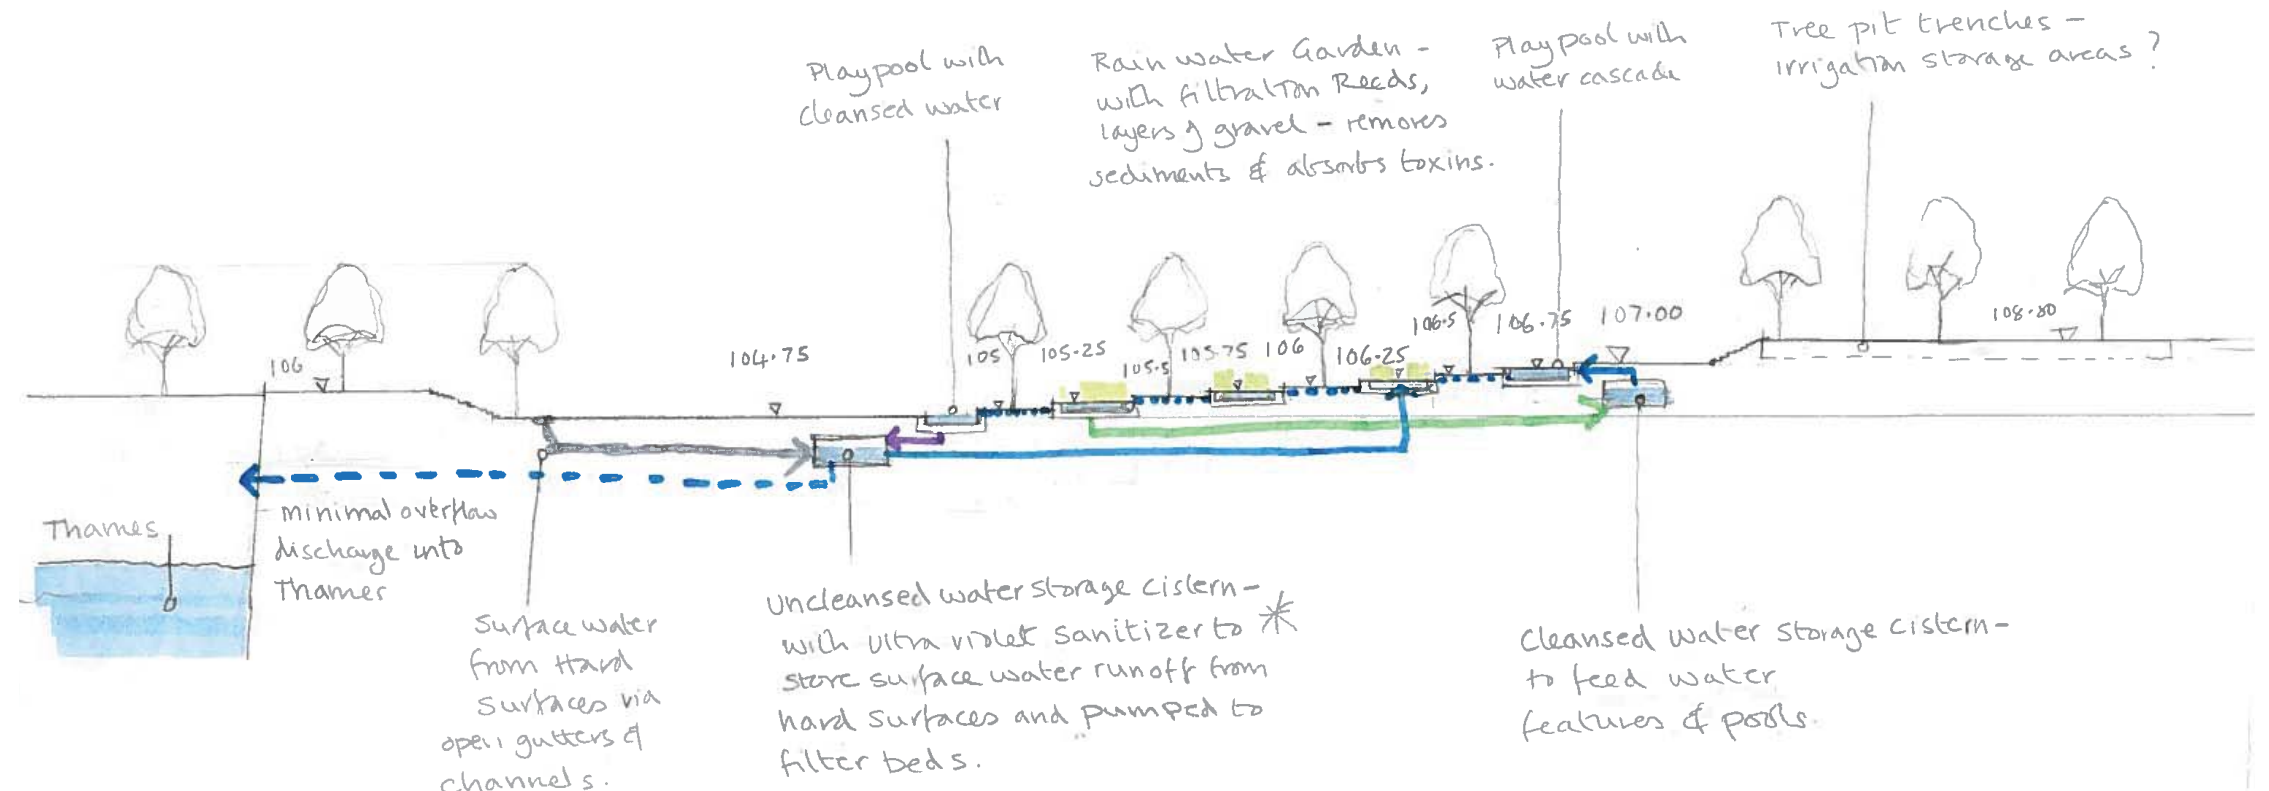 Playpool with
cleansed water
Rain water Garden -
with filtration Reeds,
layers of gravel - removes
sediments & absorbs toxins.
Playpool with
water cascade
Tree pit trenches -
irrigation storage areas ?
106
104.75
105
105.25
105.5
105.75
106
106.25
106.5
106.75
107.00
108.80
Thames
minimal overflow
discharge into
Thames
Surface water
from Hard
Surfaces via
open gutters &
channels.
Uncleansed water storage cistern -
with ultra violet sanitizer to *
store surface water runoff from
hard surfaces and pumped to
filter beds.
Cleansed water storage cistern -
to feed water
features & pools.